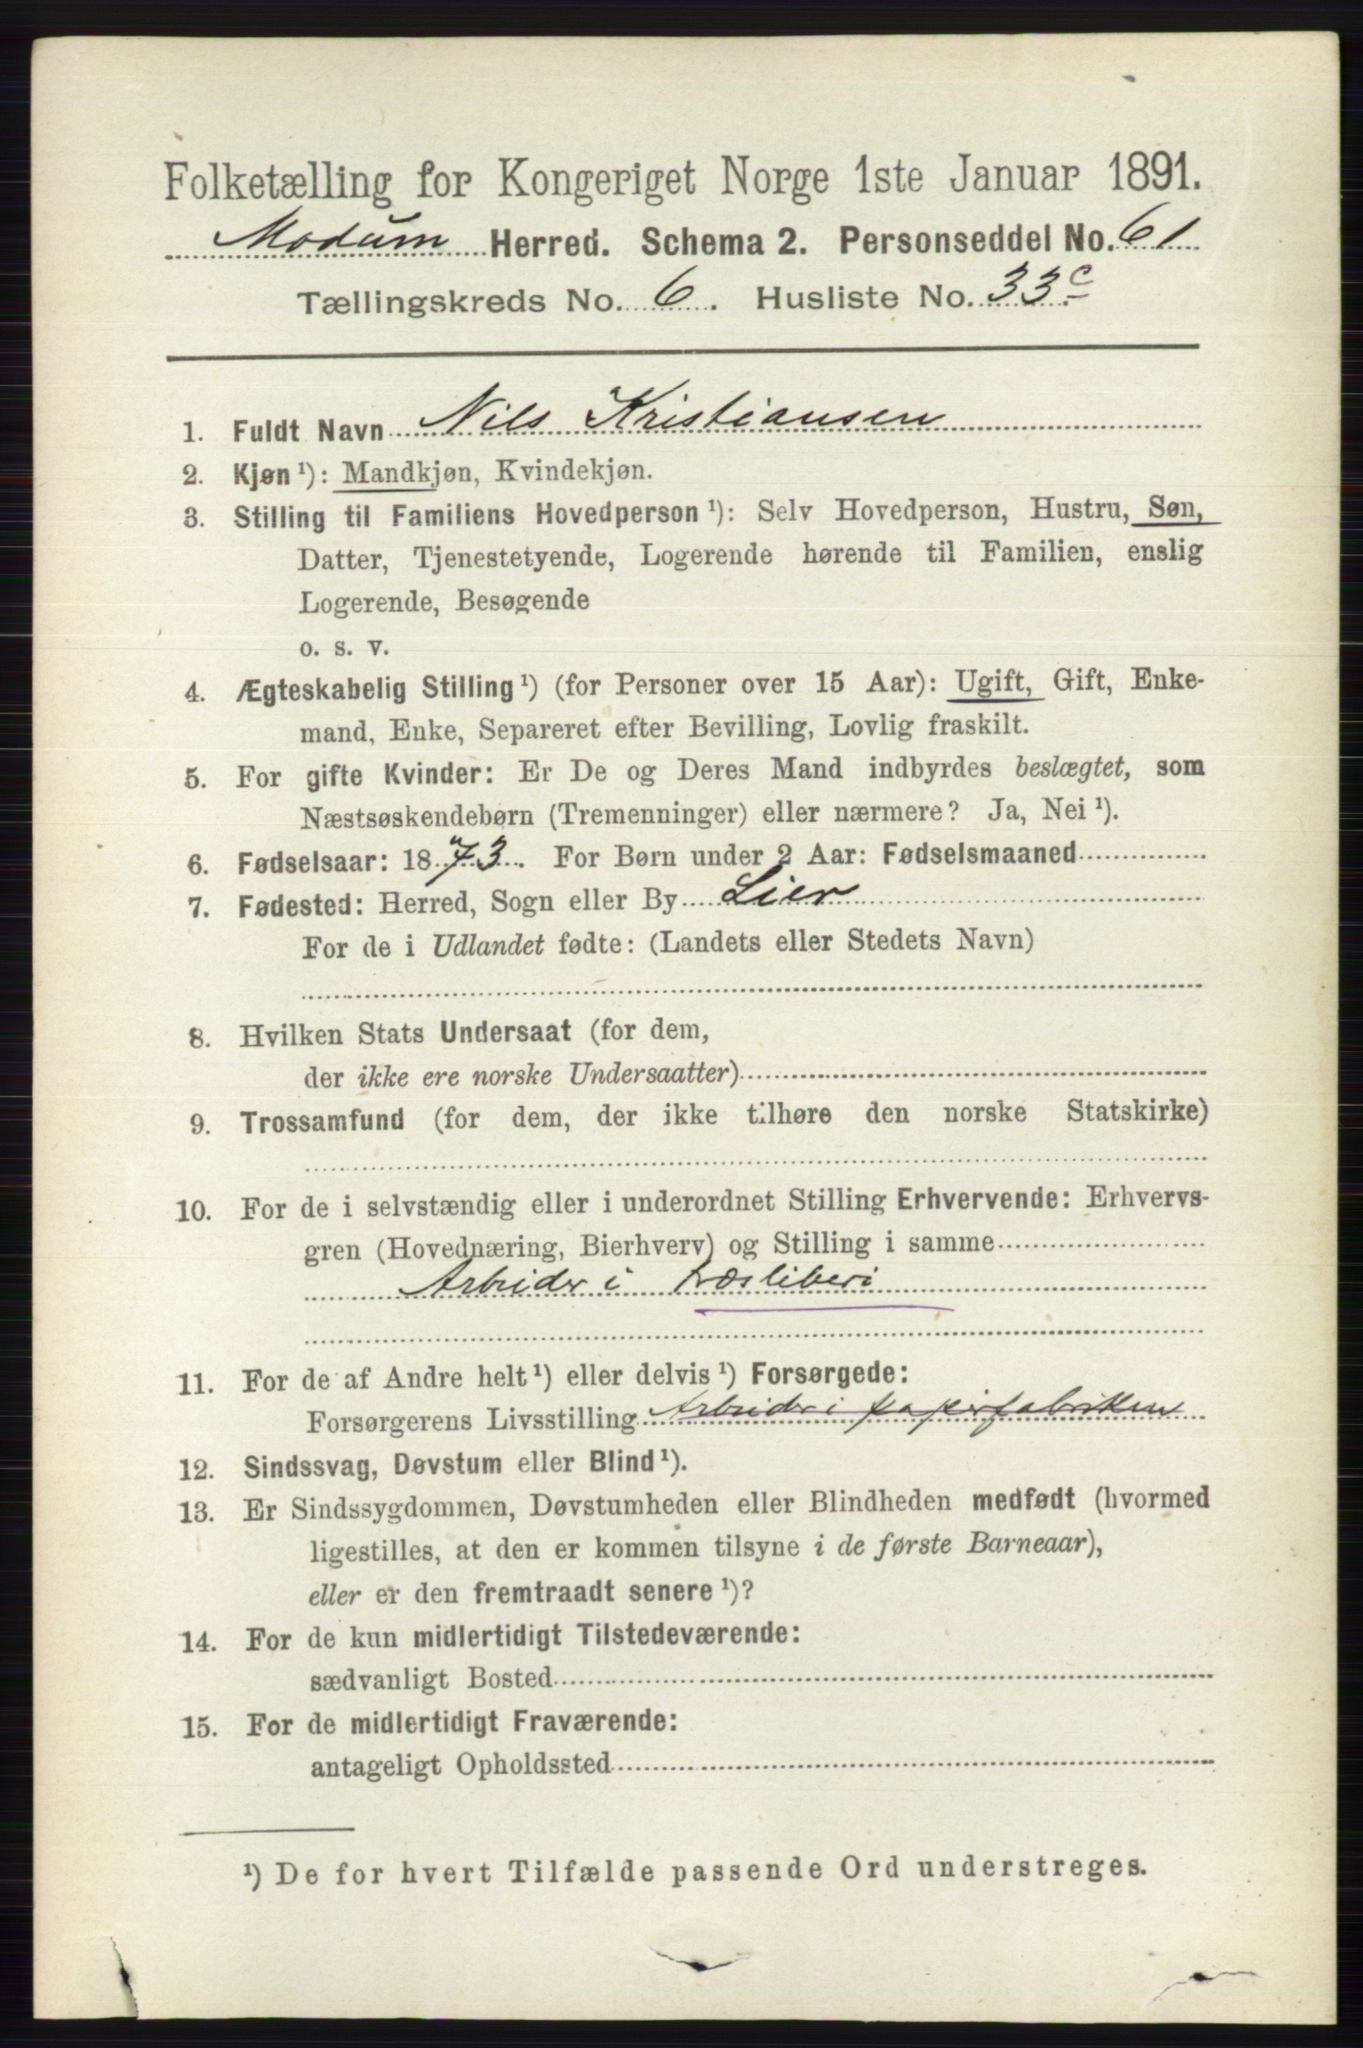 Folketælling for Kongeriget Norge 1ste Januar 1891.
Modum Herred. Schema 2. Personseddel No. 61
Tællingskreds No. 6. Husliste No. 33c
1. Fuldt Navn Nils Kristiansen
2. Kjøn ¹): Mandkjøn, Kvindekjøn.
3. Stilling til Familiens Hovedperson ¹): Selv Hovedperson, Hustru, Søn,
Datter, Tjenestetyende, Logerende hørende til Familien, enslig
Logerende, Besøgende
o. s. v.
4. Ægteskabelig Stilling ¹) (for Personer over 15 Aar): Ugift, Gift, Enke-
mand, Enke, Separeret efter Bevilling, Lovlig fraskilt.
5. For gifte Kvinder: Er De og Deres Mand indbyrdes beslægtet, som
Næstsøskendebørn (Tremenninger) eller nærmere? Ja, Nei ¹).
6. Fødselsaar: 1873. For Børn under 2 Aar: Fødselsmaaned
7. Fødested: Herred, Sogn eller By Lier
For de i Udlandet fødte: (Landets eller Stedets Navn)
8. Hvilken Stats Undersaat (for dem,
der ikke ere norske Undersaatter)
9. Trossamfund (for dem, der ikke tilhøre den norske Statskirke)
10. For de i selvstændig eller i underordnet Stilling Erhvervende: Erhvervs-
gren (Hovednæring, Bierhverv) og Stilling i samme
Arbeider i træsliberi
11. For de af Andre helt ¹) eller delvis ¹) Forsørgede:
Forsørgerens Livsstilling Arbeider i papirfabriken
12. Sindssvag, Døvstum eller Blind ¹).
13. Er Sindssygdommen, Døvstumheden eller Blindheden medfødt (hvormed
ligestilles, at den er kommen tilsyne i de første Barneaar),
eller er den fremtraadt senere ¹)?
14. For de kun midlertidigt Tilstedeværende:
sædvanligt Bosted
15. For de midlertidigt Fraværende:
antageligt Opholdssted
¹) De for hvert Tilfælde passende Ord understreges.